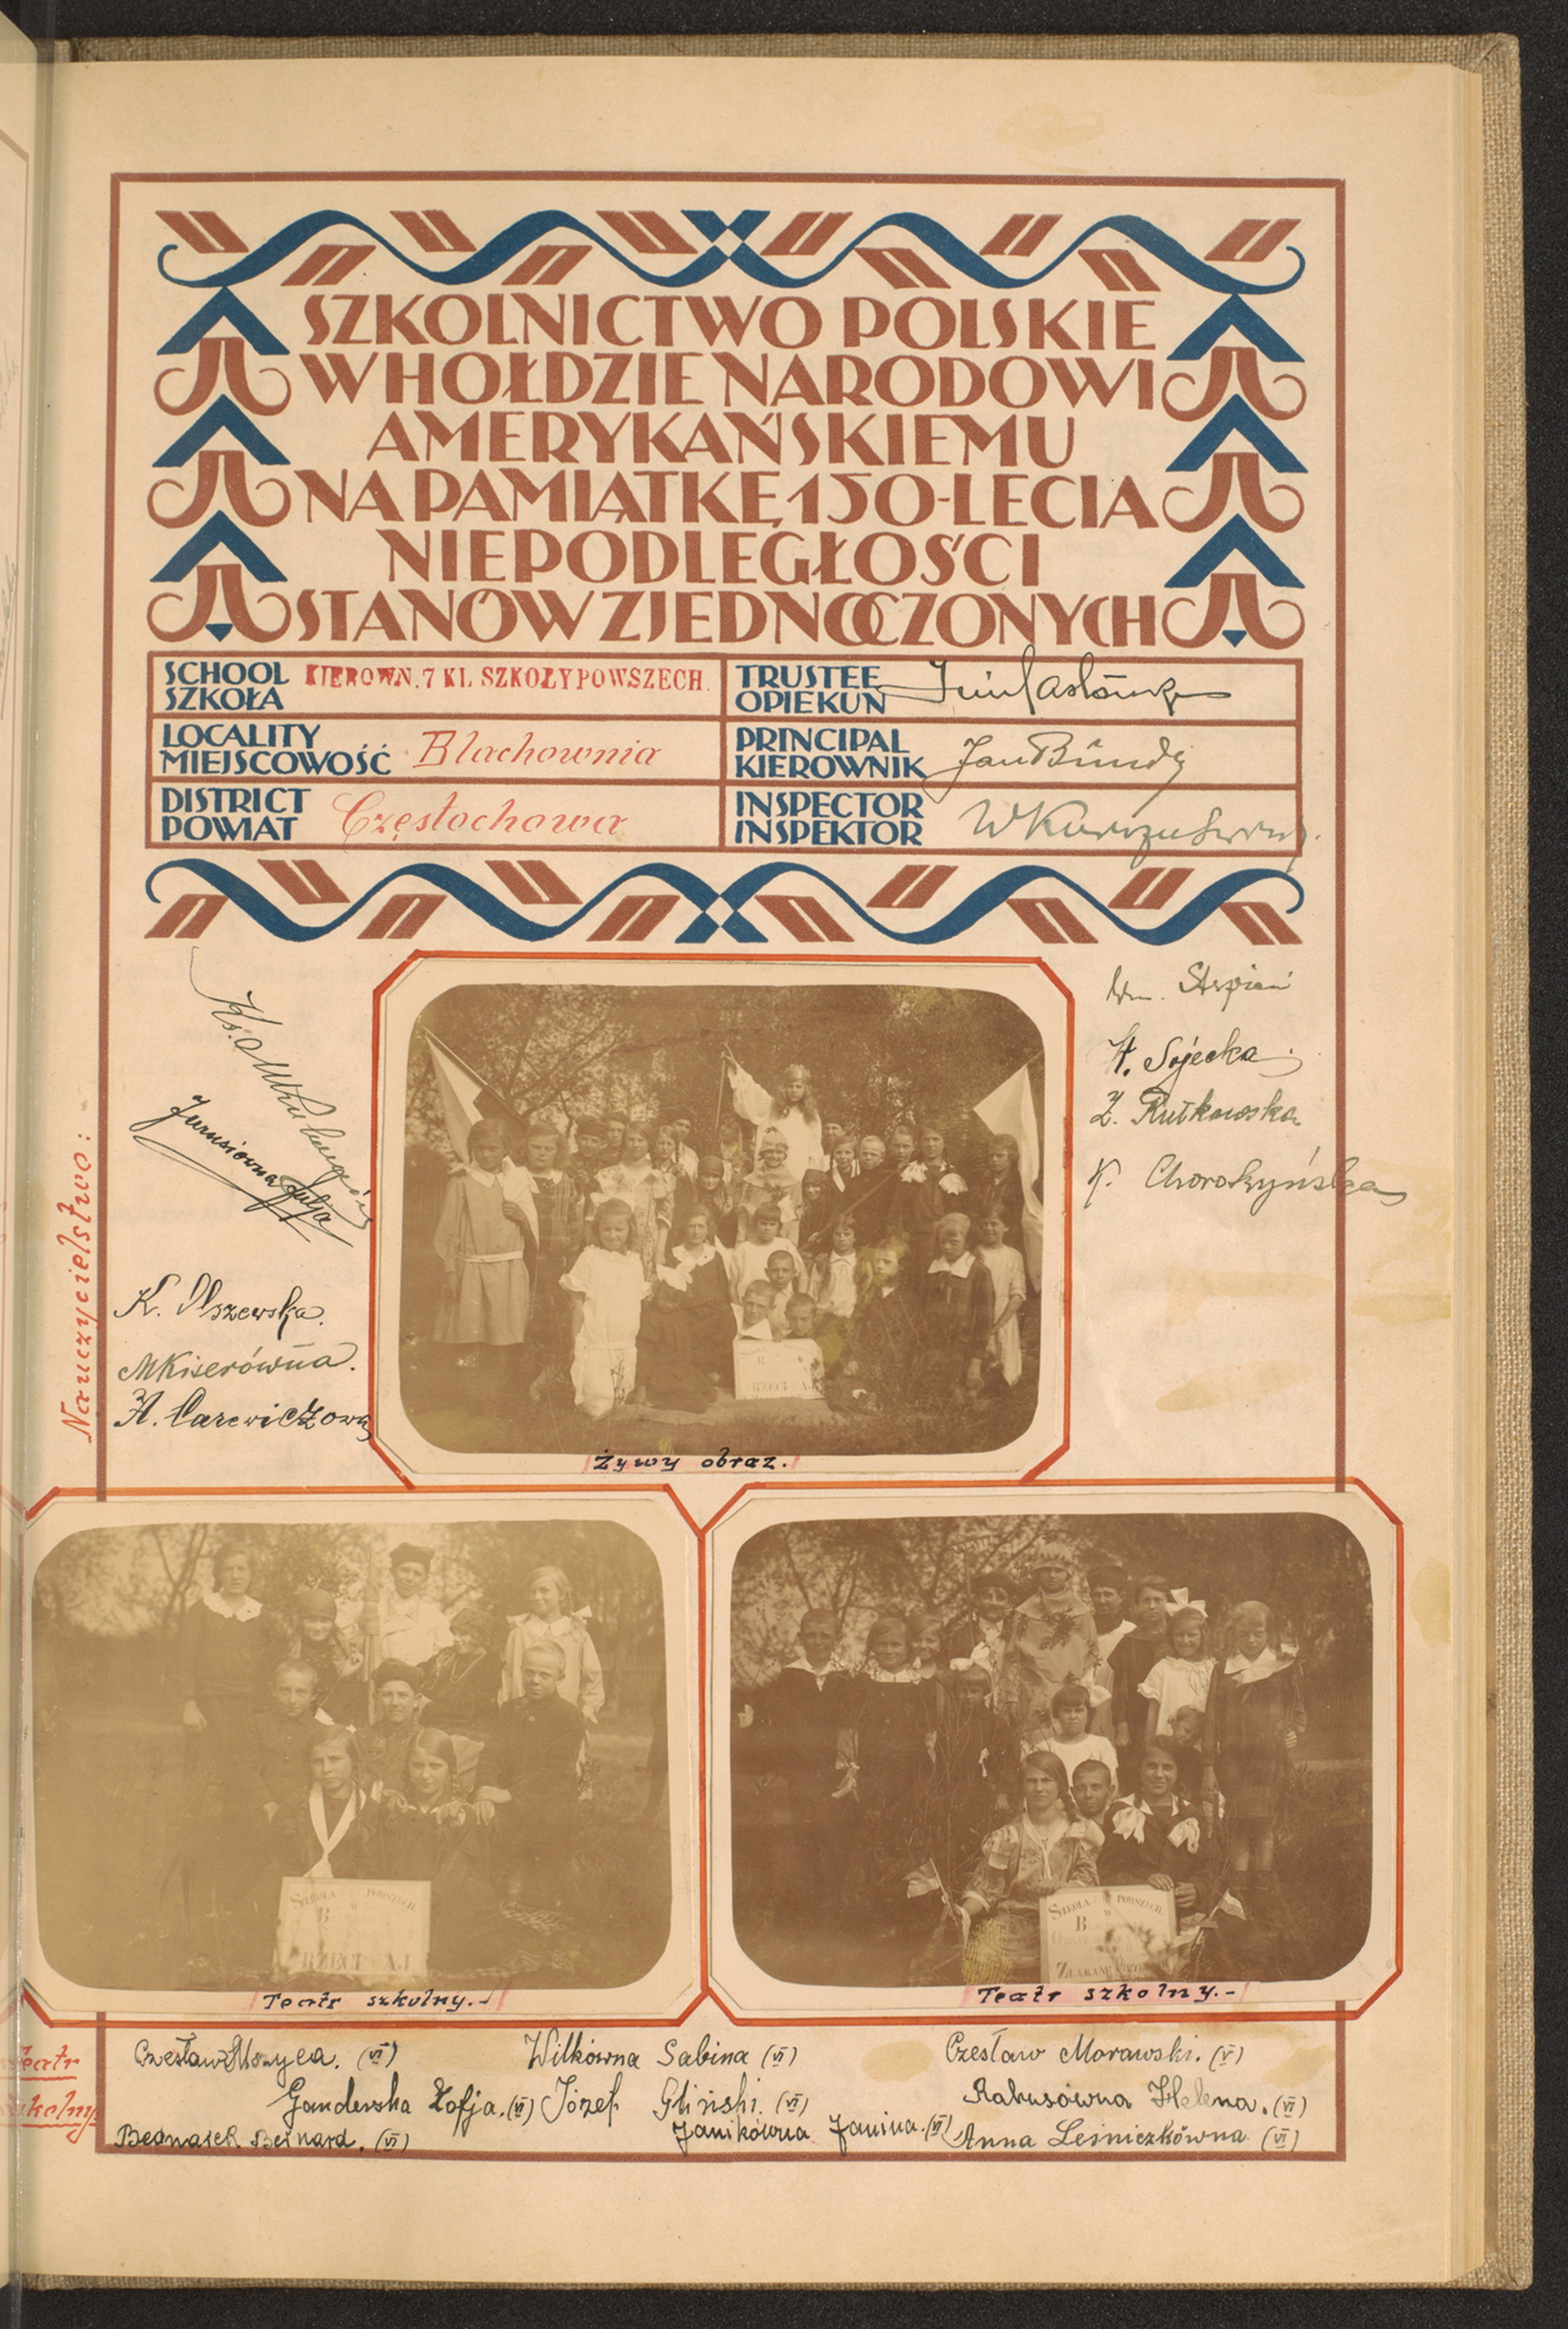 SZKOLNICTWO POLSKIE
W HOŁDZIE NARODOWI
AMERYKAŃSKIEMU
NA PAMIĄTKĘ 150-LECIA
NIEPODLEGŁOŚCI
STANÓW ZJEDNOCZONYCH
SCHOOL
SZKOŁA
KIEROWN. 7 KL. SZKOŁY POWSZECH.
TRUSTEE
OPIEKUN
LOCALITY
MIEJSCOWOŚĆ
Blachownia
PRINCIPAL
KIEROWNIK
Jan Bundy
DISTRICT
POWIAT
Częstochowa
INSPECTOR
INSPEKTOR
Nauczycielstwo:
Ks.
Jurusiówna Julja
K. Olszewska.
M Kiserówna.
H. Carewiczowa
Stępień
H. Sojecka.
Z. Rutkowska
K. Choroszyńska
RZECI AJ
Żywy obraz.
SZKOŁA POWSZECH.
W
B
RZECI AJ
Teatr szkolny.-
SZKOŁA POWSZECH.
W
B
Teatr szkolny.-
Teatr
szkolny
Czesław (VI)
Wilkówna Sabina (VI)
Czesław Morawski. (V)
Ganderska Zofja. (VI)
Józef Gliński. (VI)
Rabusówna Helena. (VI)
Bednarek Bernard. (VI)
Janikówna Janina. (VI)
Anna Leśniczkówna (VI)